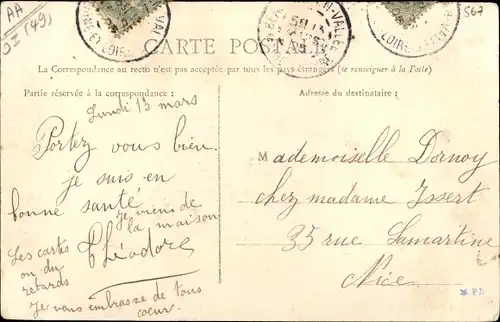 AA
(49)
567
CARTE POSTALE
La Correspondance au recto n'est pas acceptée par tous les pays étrangers (se renseigner à la Poste)
Partie réservée à la correspondance :
Lundi 13 mars
Portez vous bien.
je suis en
bonne santé
Je viens de
la maison
Théodore
Les cartes
ou du
retards
Je vous embrasse de tous
coeur.
Adresse du destinataire :
Mademoiselle Dornoy
chez madame Issert
35 rue Lamartine
Nice